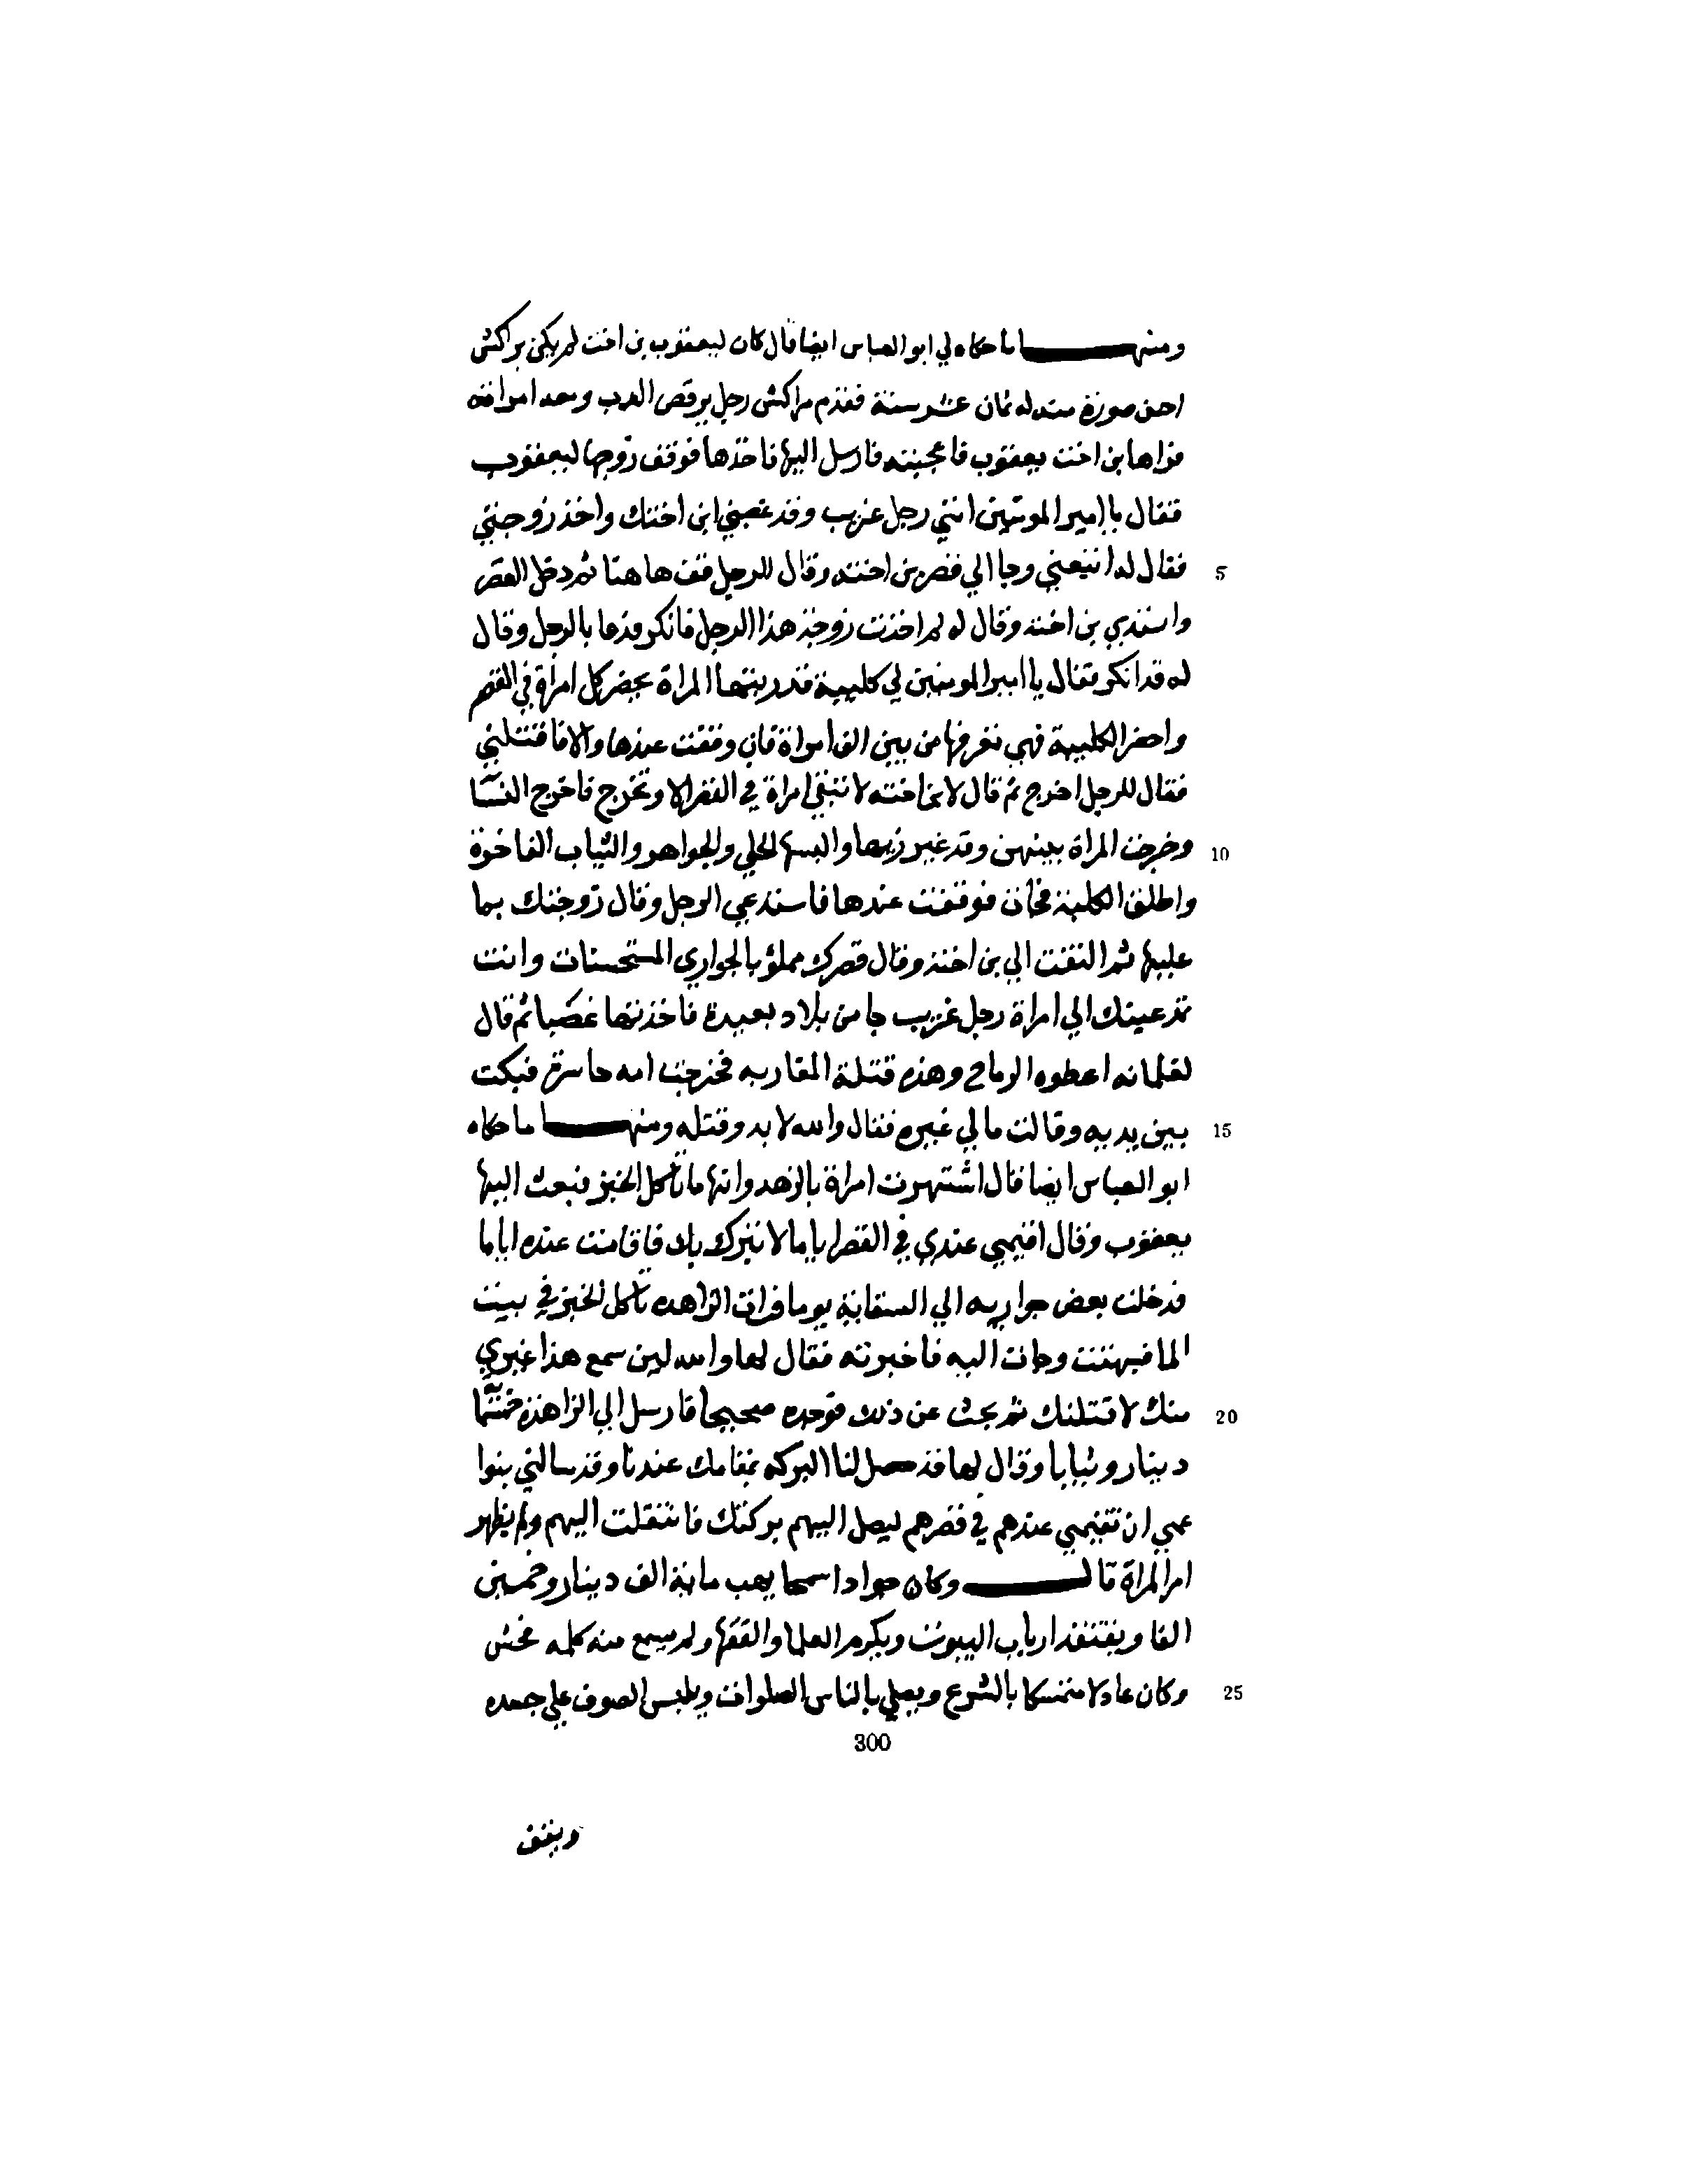 ومنها ما حكاه لي ابو العباس ايضا قال كان ليعقوب بن اخت لم يكن بمراكش
احسن صورة منه له ثمان عشر سنة فقدم مراكش رجل يرقص الدب ومعه امراته
فراها بن اخت يعقوب فاعجبته فارسل اليها فاخذها فوقف زوجها ليعقوب
فقال يا امير المومنين انني رجل غريب وقد غصبني ابن اختك واخذ زوجتي
5 فقال له اتبعني وجا الي قصر بن اخته وقال للرجل قف هاهنا ثم دخل القصر
واستدعي بن اخته وقال له لم اخذت زوجة هذا الرجل فانكر فدعا بالرجل وقال
له قد انكر فقال يا امير المومنين لي كليبة قد ربتها المراة يحضر كل امراة في القصر
واحضر الكليبة فهي تعرفها من بين الف امراة فان وقفت عندها والا فاقتلني
فقال للرجل اخرج ثم قال لابن اخته لا تبقي امراة في القصر الا وتخرج فاخرج النسا
10 وخرجت المراة بينهن وقد غير زيها والبسها الحلي والجواهر والثياب الفاخرة
واطلق الكلبة فجات فوقفت عندها فاستدعي الرجل وقال زوجتك بما
عليها ثم التفت الي بن اخته وقال قصرك مملو بالجواري المستحسنات وانت
تمد عينك الي امراة رجل غريب جا من بلاد بعيدة فاخذتها غصبا ثم قال
لغلمانه اعطوه الرماح وهذه قتلة المغاربه فخرجت امه حاسرة فبكت
15 بين يديه وقالت مالي غيره فقال والله لا بد وقتله ومنها ما حكاه
ابو العباس ايضا قال اشتهرت امراة بالزهد وانها ما تاكل الخبز فبعث اليها
يعقوب وقال اقيمي عندي في القصر اياما لا تبرك بك فاقامت عنده اياما
فدخلت بعض جواريه الي السقاية يوما فرات الزاهده تاكل الخبز في بيت
الما فبهتت وجات اليه فاخبرته فقال لها والله لين سمع هذا غيري
20 منك لاقتلنك ثم بحث عن ذلك فوجده صحيحا فارسل الي الزاهدة خمسماية
دينار وثيابا وقال لها قد حصل لنا البركه بمقامك عندنا وقد سالني بنوا
عمي ان تقيمي عندهم في قصرهم ليصل اليهم بركتك فانتقلت اليهم ولم يظهر
امر المراة قال وكان جوادا سمحا يهب ماية الف دينار وخمسين
الفا ويفتقد ارباب البيوت ويكرم العلما والفقها ولم يسمع منه كلمه فحش
25 وكان عادلا متمسكا بالشرع ويصلي بالناس الصلوات ويلبس الصوف علي جسده
300
ويقف